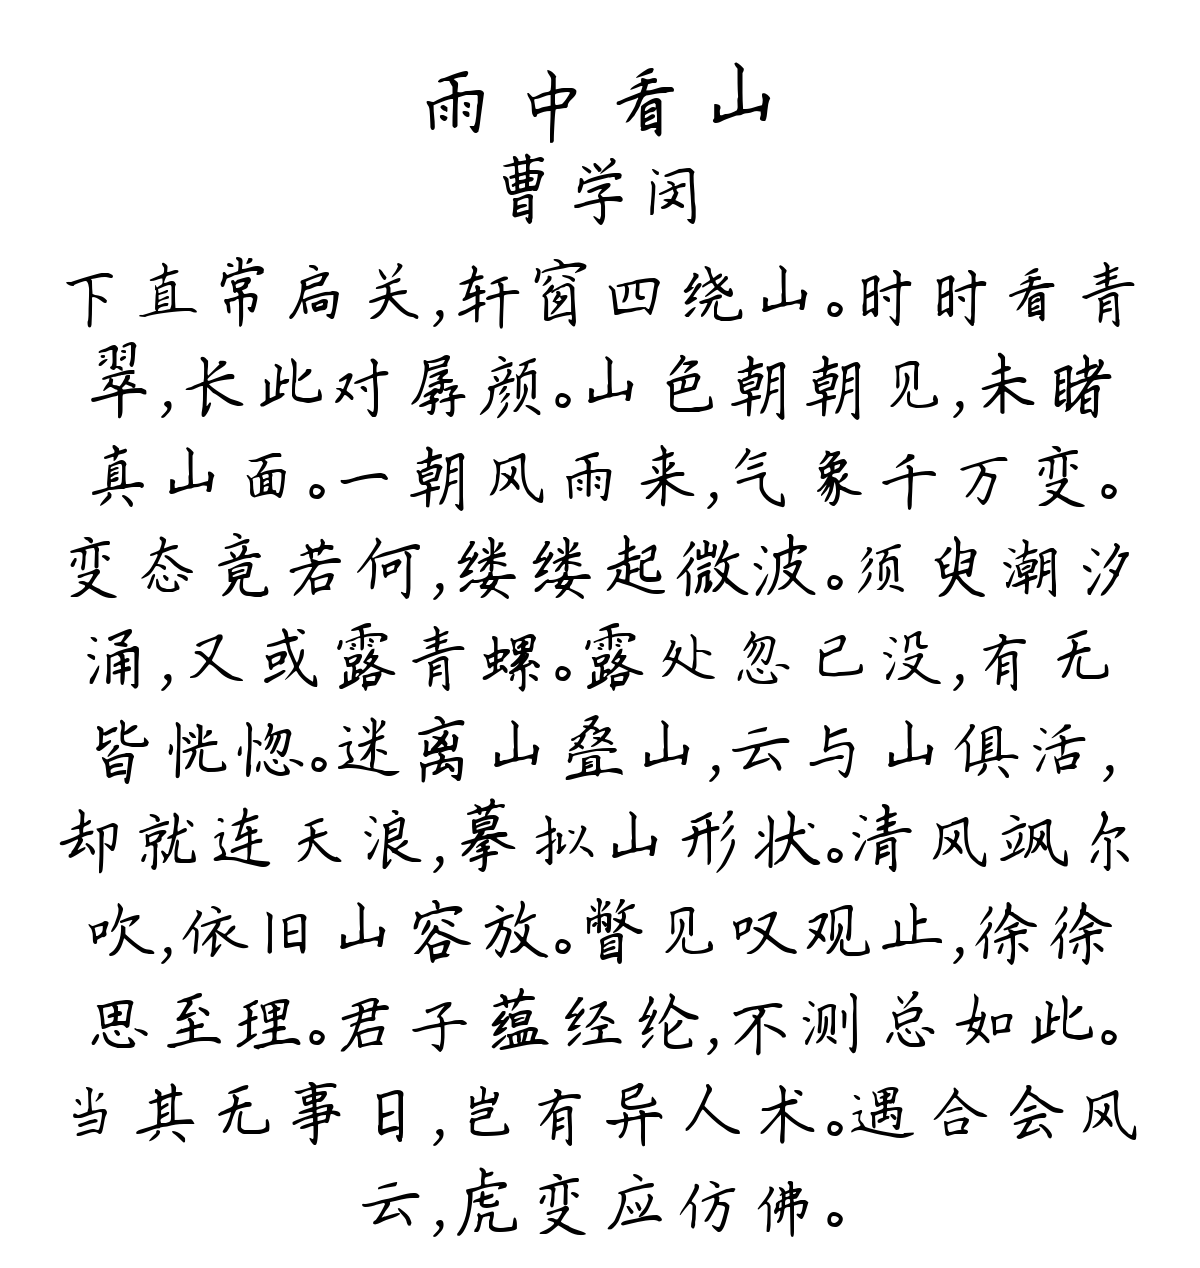 雨中看山
曹学闵
下直常扃关,轩窗四绕山。时时看青
翠,长此对孱颜。山色朝朝见,未睹
真山面。一朝风雨来,气象千万变。
变态竟若何,缕缕起微波。须臾潮汐
涌,又或露青螺。露处忽已没,有无
皆恍惚。迷离山叠山,云与山俱活,
却就连天浪,摹拟山形状。清风飒尔
吹,依旧山容放。瞥见叹观止,徐徐
思至理。君子蕴经纶,不测总如此。
当其无事日,岂有异人术。遇合会风
云,虎变应仿佛。